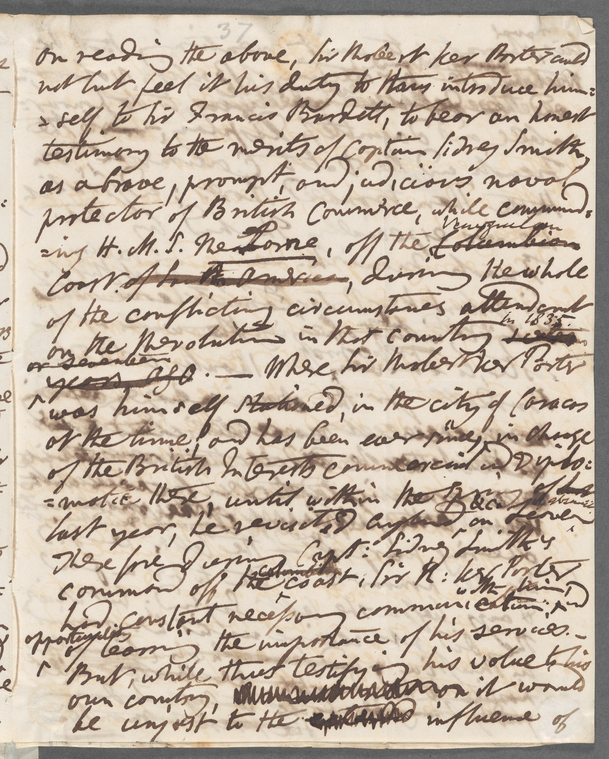 37
on reading the above, Sir Robert Ker Porter could
not but feel it his duty to thus introduce him=
=self to Sir Francis Burdett, to bear an honest
testimony to the merits of Captain Sidney Smith,
as a brave, prompt, and judicious naval
protector of British Commerce, while command=
=ing H. M. S. the Lorne, off the Columbian
Coast of South America, during the whole
of the conflicting circumstances attendant
on the Revolution in that country in 1835.
or seventeen
years ago. — Where Sir Robert Ker Porter
was himself stationed, in the city of Caracas
at the time; and has been ever since, in charge
of the British Interests commercial and Diplo=
=matic there, until within the
last year, he revisited England on leave
Therefore during Capt: Sidney Smith's
command off the Columbian coast, Sir R: Ker Porter
had constant necessary communication with him, and
opportunities
of learning the importance of his services. –
But, while thus testifying his value to his
own country, it would
be unjust to the influence of